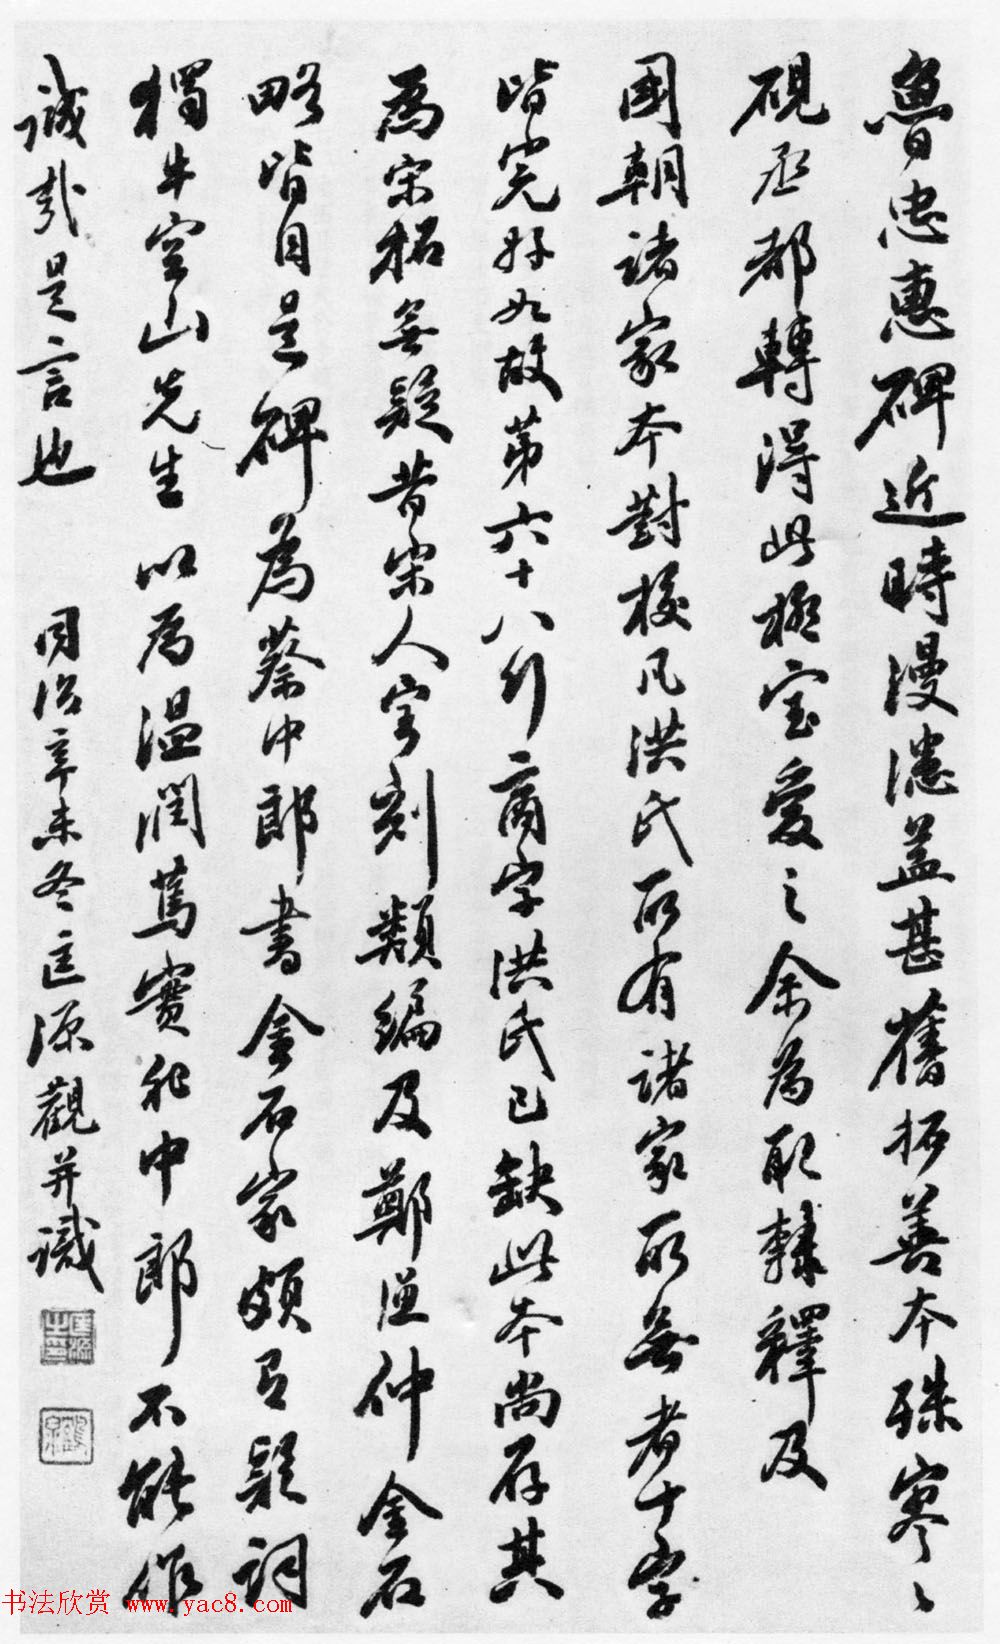 魯忠惠碑近時漫漶益甚舊拓善本殊寥〻
硯丞都轉得此極寶愛之余為取隸釋及
國朝諸家本對校凡洪氏所有諸家所無者十字
皆完好如故第六十八行商字洪氏已缺此本尚存其
為宋拓無疑昔宋人寶刻類編及鄭漁仲金石
略皆目是碑為蔡中郎書金石家頗有疑詞
獨牛空山先生以為溫潤篤實非中郎不能作
誠哉是言也 同治辛未冬匡源觀并識
匡源之印
鶴泉
书法欣赏 www.yac8.com